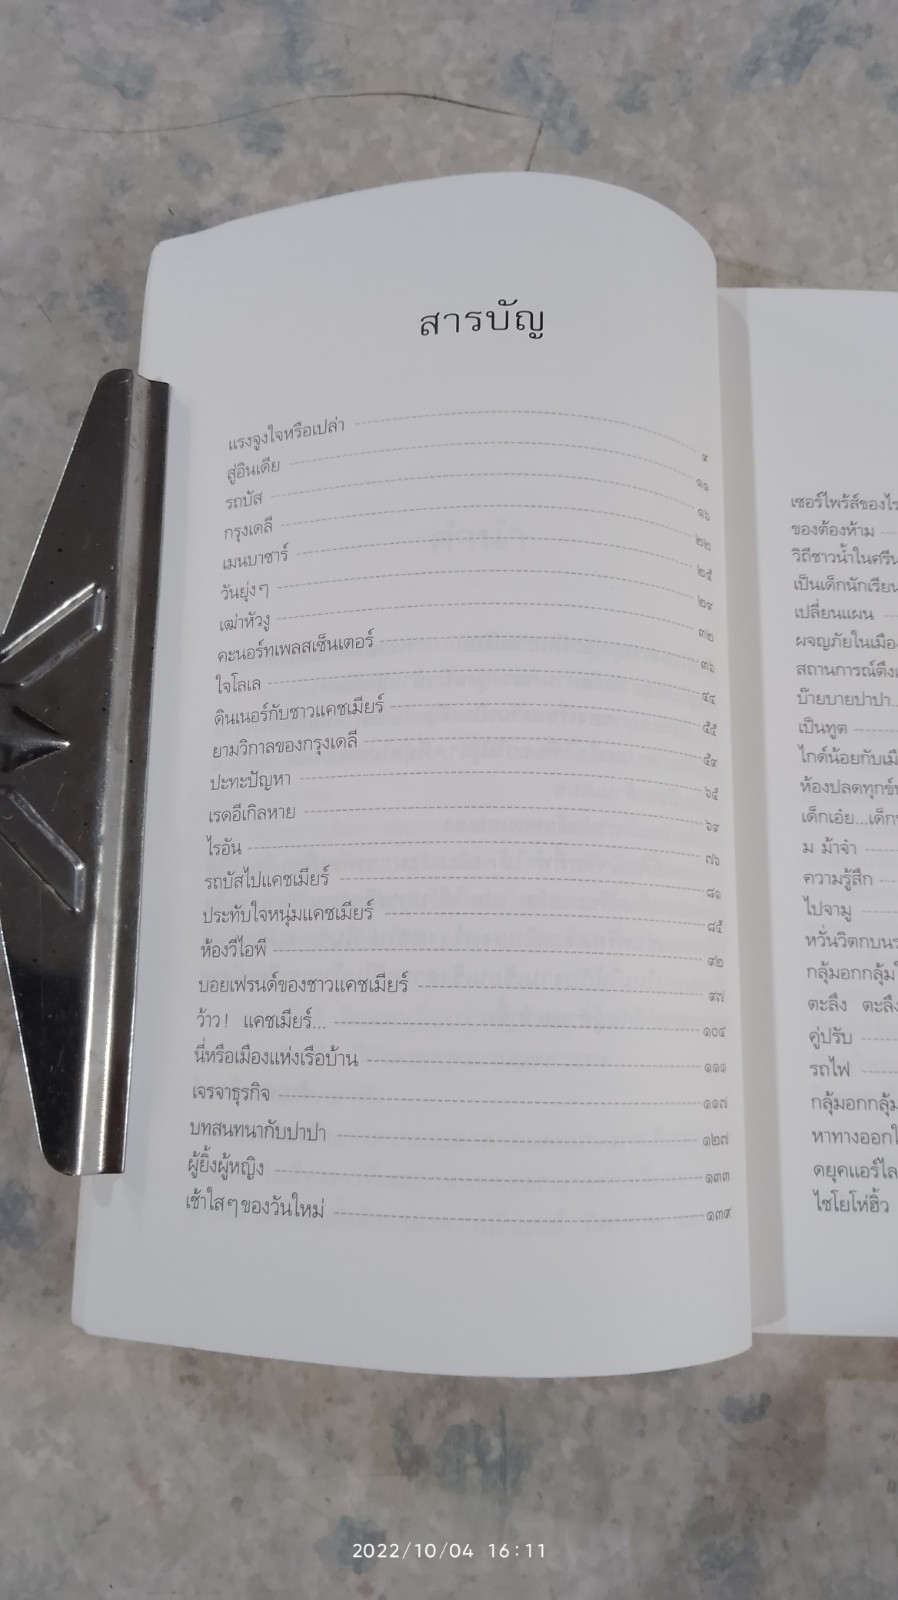 สารบัญ
แรงจูงใจหรือเปล่า ๙
สู่อินเดีย ๑๑
รถบัส ๑๖
กรุงเดลี ๒๒
เมนบาซาร์ ๒๕
วันยุ่งๆ ๒๙
เฒ่าหัวงู ๓๒
คะนอร์ทเพลสเซ็นเตอร์ ๓๖
ใจโลเล ๔๔
ดินเนอร์กับชาวแคชเมียร์ ๕๕
ยามวิกาลของกรุงเดลี ๕๙
ปะทะปัญหา ๖๕
เรดอีเกิลหาย ๖๙
ไรอัน ๗๖
รถบัสไปแคชเมียร์ ๘๑
ประทับใจหนุ่มแคชเมียร์ ๘๕
ห้องวีไอพี ๙๒
บอยเฟรนด์ของชาวแคชเมียร์ ๙๗
ว้าว! แคชเมียร์... ๑๐๔
นี่หรือเมืองแห่งเรือบ้าน ๑๑๑
เจรจาธุรกิจ ๑๑๗
บทสนทนากับปาปา ๑๒๗
ผู้ยิ้งผู้หญิง ๑๓๓
เช้าใสๆของวันใหม่ ๑๓๙
เซอร์ไพร้ส์ของไร
ของต้องห้าม
วิถีชาวน้ำในศรีน
เป็นเด็กนักเรียน
เปลี่ยนแผน
ผจญภัยในเมือง
สถานการณ์ตึงเ
บ๊ายบายปาปา...
เป็นทูต
ไกด์น้อยกับเมื
ห้องปลดทุกข์
เด็กเอ๋ย...เด็ก
ม ม้าจ๋า
ความรู้สึก
ไปจามู
หวั่นวิตกบน
กลุ้มอกกลุ้ม
ตะลึง ตะลึ
คู่ปรับ
รถไฟ
กลุ้มอกกลุ้ม
หาทางออก
ดยุคแอร์ไล
ไชโยโห่ฮิ้ว
2022/10/04 16:11